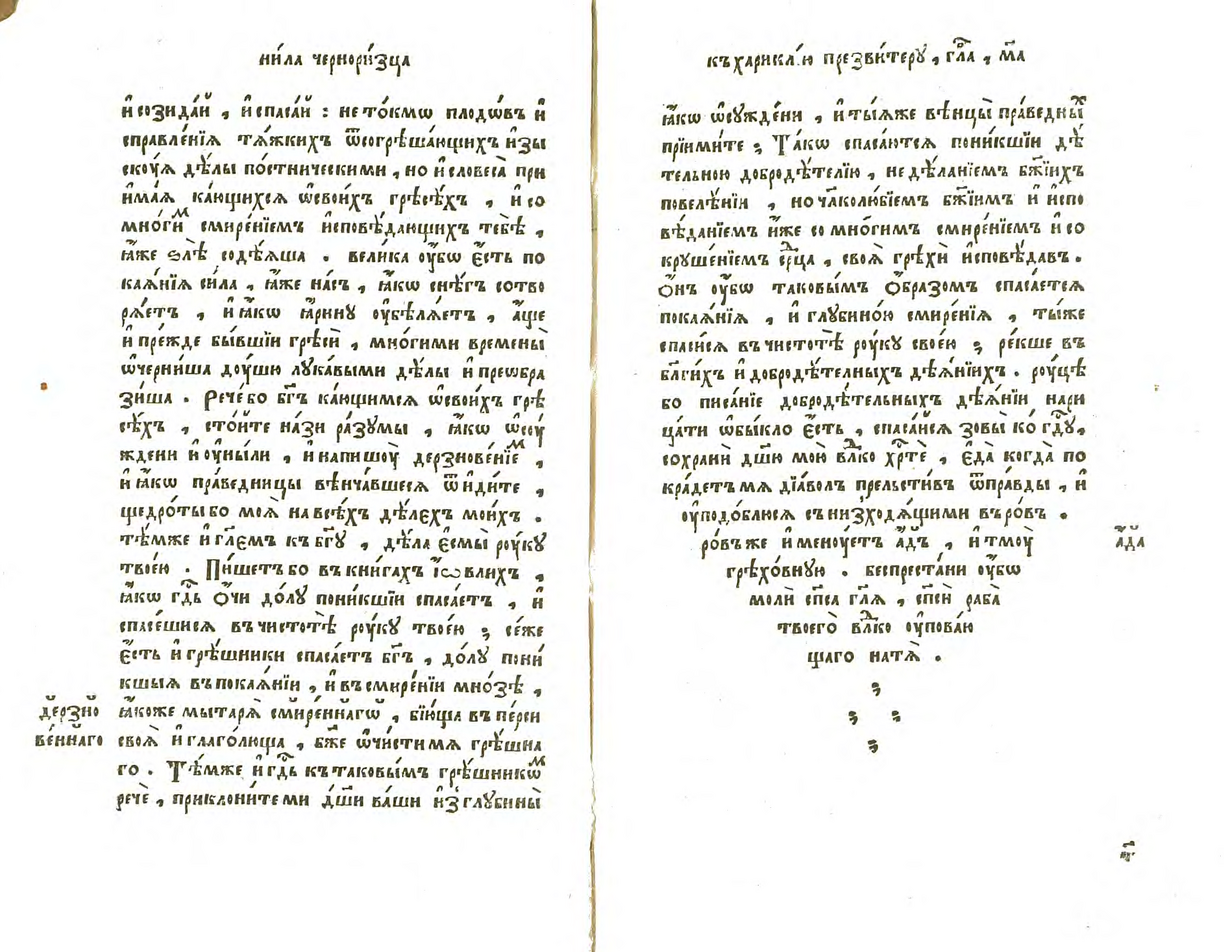 ни́ла чернори́зца
и҆созида́й , и҆спаса́й : не то́кмѡ плодѡ́въ и҆
справле́нїѧ тѧ́жкихъ ѿсогрѣша́ющихъ и҆зы
скꙋ́ѧ дѣ́лы по́стническими , но и҆словеса̀ при
и҆ма́ѧ ка́ющихсѧ ѡ҆свои́хъ грѣсѣ́хъ , и҆со
мно́гиⷨ смире́нїемъ и҆сповѣ́дающихъ тебѣ̀ ,
ꙗ҆́же ѕлѣ̀ содѣ́ѧша . велика ᲂу҆́бѡ є҆́сть по
каѧ́нїѧ си́ла , ꙗ҆́же на́съ , ꙗ҆́кѡ снѣ́гъ сотво
рѧ́етъ , и҆ ꙗ҆́кѡ ꙗ҆́рину ᲂу҆бѣлѧ́етъ , а҆́ще
и҆ пре́жде бы́вшїи грѣсѝ , мно́гими времены̀
ѡ҆черни́ша доу́шю лука́выми дѣ́лы и҆ преѡбра
зи́ша . Рече́ бо бг҃ъ ка́ющимсѧ ѡ҆свои́хъ грѣ
сѣ́хъ , сто́ите на́зи ра́зумы , ꙗ҆́кѡ ѡ҆соу
ждени и҆ оу҆ны́ли , и҆ напишоу̀ дерзнове́нїеⷨ ,
и҆ ꙗ҆́кѡ пра́ведницы вѣнча́вшесѧ ѿи҆ди́те ,
щедро́ты бо моѧ̀ на всѣ́хъ дѣ́лєхъ мои́хъ .
тѣ́мже и҆ гл҃емъ къ бг҃ꙋ , дѣ́ла є҆смы̀ роу́кꙋ
твоею̀ . Пи́шетъ бо въ кни́гахъ і҆ѡ́влихъ ,
ꙗ҆́кѡ гдⷭ҇ь ѻ҆́чи до́лꙋ пони́кшїи спаса́етъ , и҆
спасе́шисѧ въ чистотѣ̀ роу́кꙋ твое́ю ; се́же
є҆́сть и҆ грѣ́шники спаса́етъ бг҃ъ , до́лꙋ пони́
кшыѧ въ покаѧ́нїи , и҆ въ смире́нїи мно́зѣ ,
ꙗ҆́коже мытарѧ̀ смире́ннагѡ , бїю́ща въ пе́рси
своѧ̀ и҆ глаго́люща , бж҃е ѡ҆чи́сти мѧ грѣ́шна
го . Тѣ́мже и҆ гдⷭ҇ь къ таковы́мъ грѣ́шникѡⷨ
речѐ , приклони́те ми дш҃и ва́ши и҆з̾глꙋбины̀
де́рзно
ве́ннаго
къ харикл́ю презви́терꙋ , гл҃а , м҃а
ꙗ҆́кѡ ѡ҆сꙋжде́ни , и҆ ты́ѧже вѣнцы̀ пра́ведныⷯ
прїими́те ; Та́кѡ спаса́ютсѧ пони́кшїи дѣ́
тельною добродѣ́телїю , не дѣ́ланїемъ бж҃їихъ
повелѣ́нїи , но чл҃колю́бїемъ бж҃їимъ и҆ и҆спо
вѣ́данїемъ и҆́же со мно́гимъ смире́нїемъ и҆ со
крꙋше́нїемъ срⷣца , своѧ̀ грѣхѝ и҆сповѣ́давъ .
Ѻ҆́нъ ᲂу҆́бѡ таковы́мъ ѻ҆́бразомъ спаса́етсѧ
покаѧ́нїѧ , и҆ глꙋбино́ю смире́нїѧ , ты́же
спаси́сѧ въ чистотѣ̀ роу́кꙋ свое́ю ; ре́кше въ
бл҃ги́хъ и҆ добродѣ́тельныхъ дѣѧ́нїихъ . роу́цѣ
бо писа́нїе добродѣ́тельныхъ дѣѧ́нїи нари
ца́ти ѡ҆бы́кло є҆́сть , спаса́йсѧ зовы̀ ко гдⷭ҇ꙋ ,
сохранѝ дш҃ю мою̀ влⷣко хрⷭ҇те , є҆да̀ когда̀ по
кра́детъ мѧ дїа́волъ прельсти́въ ѿпра́вды , и҆
ᲂу҆подо́блюсѧ съ низходѧ́щими въ ро́въ .
ро́въ же и҆менꙋ́етъ а҆́дъ , и҆ тмоу̀
грѣхо́внꙋю . беспреста́ни ᲂу҆́бѡ
молѝ сп҃са гл҃ѧ , сп҃сѝ раба̀
твоего̀ влⷣко ᲂу҆пова́ю
щаго на тѧ̀ .
а҆́да